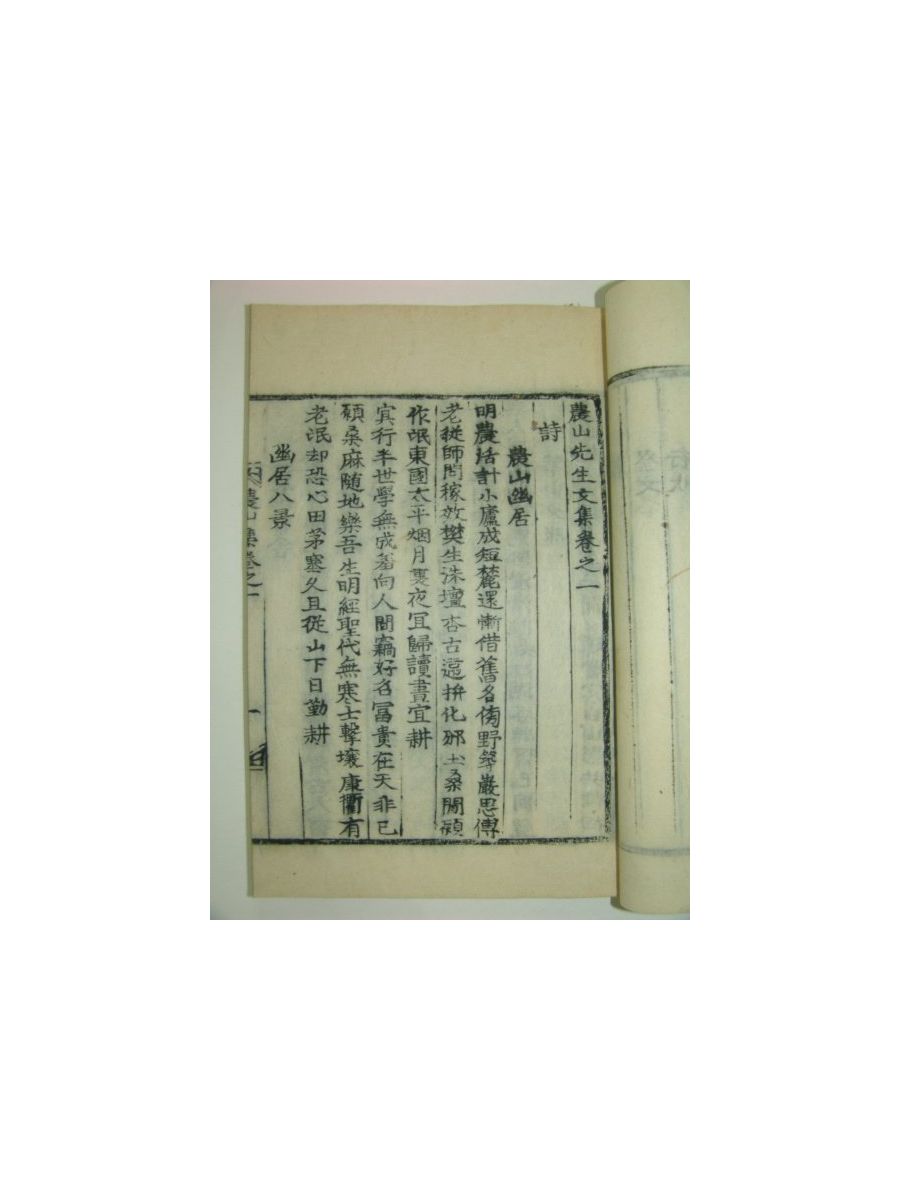 農山先生文集卷之一
詩
農山幽居
明農活計小廬成短麓還慚借舊名傍野築巖思傅
老從師問稼效樊生洙壇杏古還拚化邠土桑閒願
作氓東國太平烟月裏夜冝歸讀晝宜耕
冥行半世學無成羞向人間竊好名冨貴在天非已
願桑麻隨地樂吾生明經聖代無寒士擊壤康衢有
老氓却恐心田茅塞久且從山下日勤耕
幽居八景
農山集卷之一
一